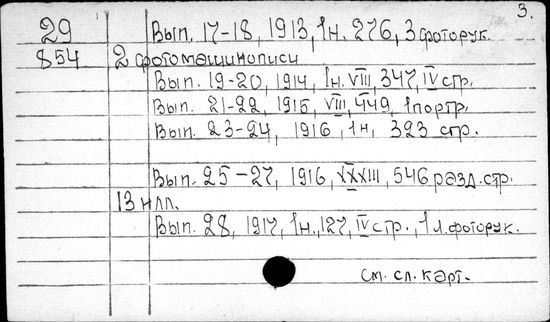 3.
29 Вып. 17-18, 1913, 1н. 276, 3 фоторук.
854 2 фотомашинописи
Вып. 19-20, 1914, 1н. VIII, 347, IV стр.
Вып. 21-22, 1915, VIII, 449, 1 портр.
Вып. 23-24, 1916, 1н, 323 стр.
Вып. 25-27, 1916, XXXIII, 546 разд. стр.
13 нлл.
Вып. 28, 1917, 1н., 127, IV стр., 1 л. фоторук.
См. сл. карт.